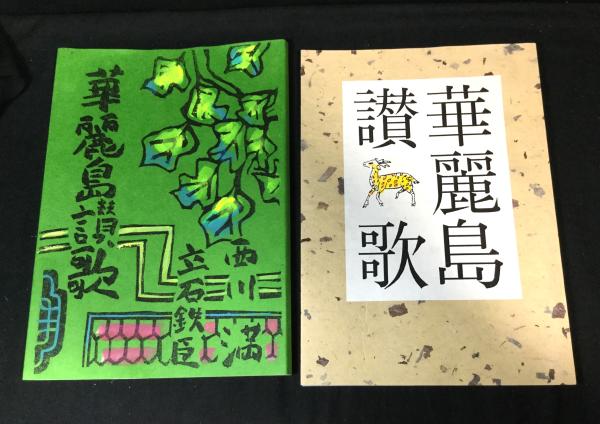 華麗島讃歌
西川満
立石鉄臣
華麗島
讃歌